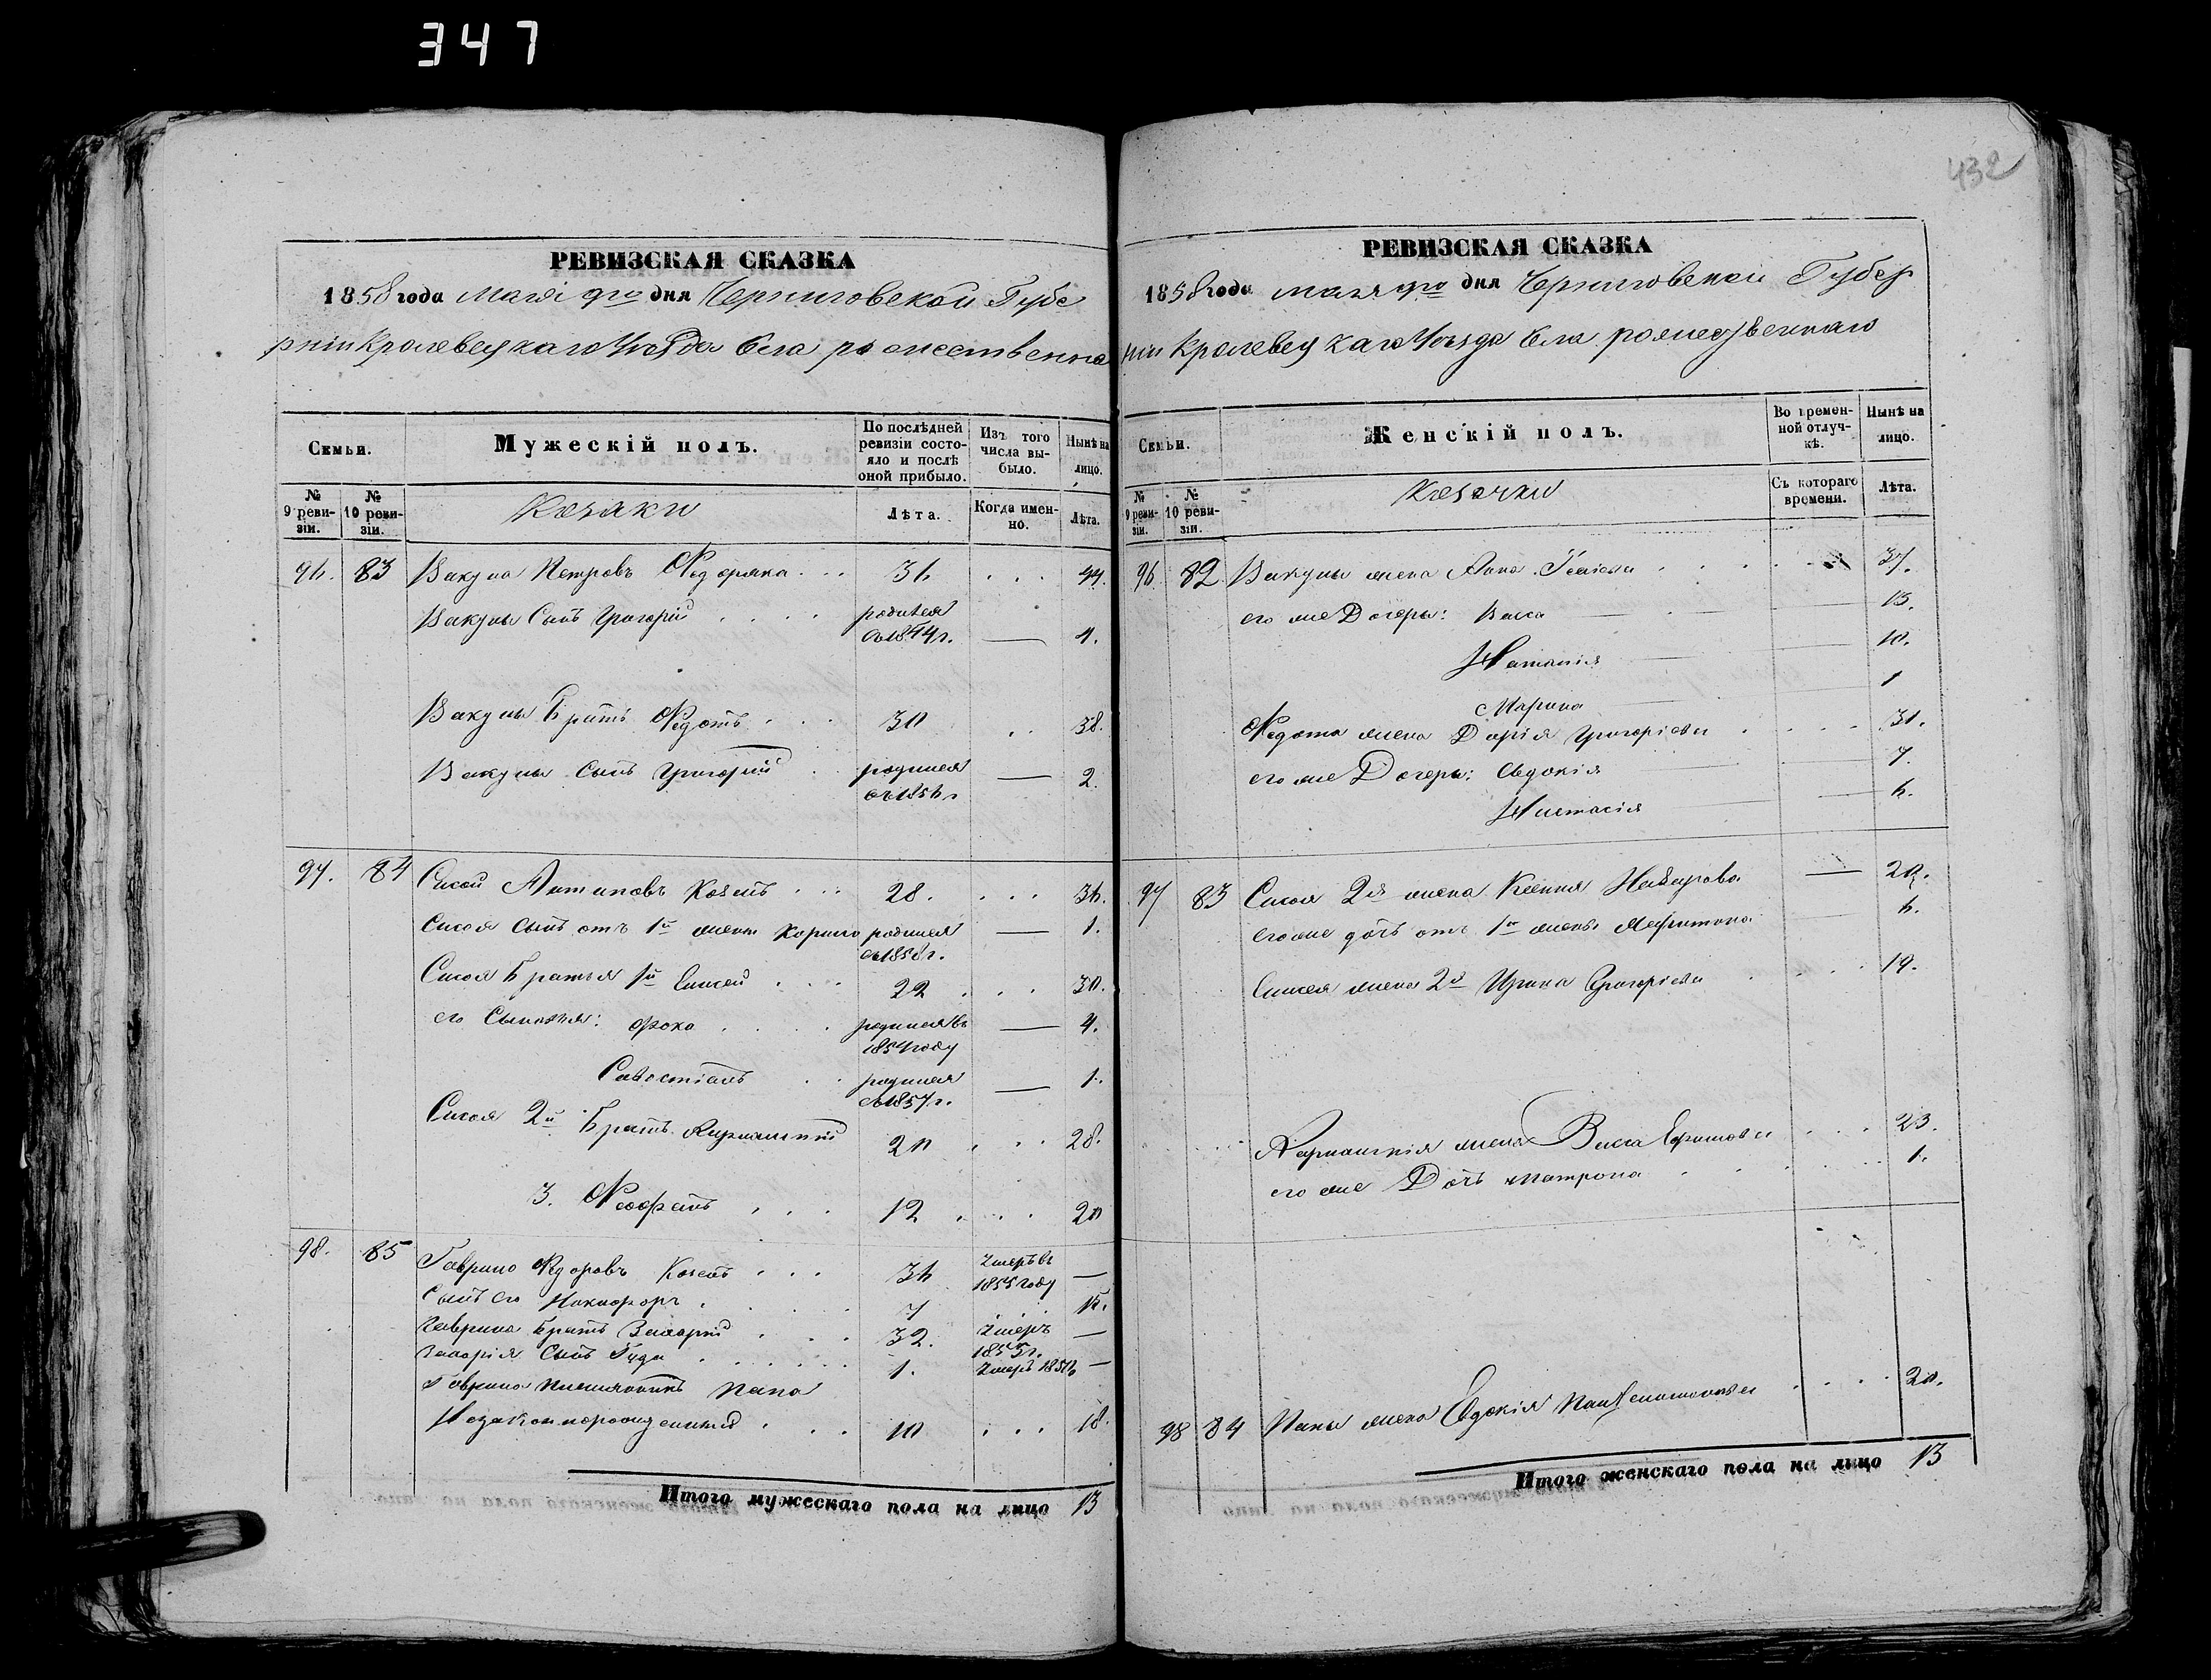 347
432
РЕВИЗСКАЯ СКАЗКА
1858 года мая 9го дня Черниговской Губе
рніи Кролевецкаго Уѣзда Села рожественна
Семьи.
Мужескій полъ.
По послѣдней ревизіи состояло и послѣ оной прибыло.
Изъ того числа выбыло.
Нынѣ на лицо.
№ 9 ревизіи.
№ 10 ревизіи.
Козаки
Лѣта.
Когда именно.
Лѣта.
96. 83 Вакула Петровъ Федоряка . . . 36 . . . 44.
Вакулы Сынъ Григорій . . . . родился въ 1854 г. — 4.
Вакулы Братъ Федотъ . . . 30 . . 38.
Вакулы Сынъ Григорій . родился въ 1856 г. — 2.
97. 84 Сысой Антиповъ Козелъ . . . 28. . . . 36.
Сысоя Сынъ отъ 1й жены Корнило родился въ 1858 г. — 1.
Сысоя Братья 1й Елисей . . . 22 . . . 30.
его Сыновья: Фока . . . . родился въ 1854 году — 4.
Савостіанъ . . родился въ 1857 г. — 1.
Сысоя 2й Братъ 20 . . . 28.
3. Феофанъ . . . 12 . . . 20
98. 85 Гаврило Федоровъ Козелъ . . . 36 Умеръ въ 1855 году —
Сынъ его Никифоръ . . . . 7 . . 15.
Гаврила Братъ Захарій . . . 32. Умеръ 1855 г. —
Захарія Сынъ . . . . . . 1. Умеръ —
Гаврила
Незаконнорожденный . . . 10 . . . 18.
Итого мужескаго пола на лицо 13
РЕВИЗСКАЯ СКАЗКА
1858 года мая 9го дня Черниговской Губер
ніи Кролевецкаго Уѣзда Села рожественнаго
Семьи.
Женскій полъ.
Во временной отлучкѣ.
Нынѣ на лицо.
№ 9 ревизіи.
№ 10 ревизіи.
Козачки
Съ котораго времени.
Лѣта.
96. 82. Вакулы жена Анна . . . . 37.
его же Дочеры: Васса — — 13.
Наталія — — 10.
Марина — — 1
Федота жена Дарія Григоріева . . . . 31.
его же Дочеры: Евдокія — — 7.
Настасія — — 6.
97 83 Сысоя 2я жена Ксенія Назарова — 20.
его же дочь отъ 1й жены — 6.
Елисея жена 2я Ирина Григоріева . . . . 19.
жена Васса Ефимова . . . 23.
его же Дочь Матрона . . . . 1.
98 84 жена Евдокія Пантелимонова . . . . 20.
Итого женскаго пола на лицо 13